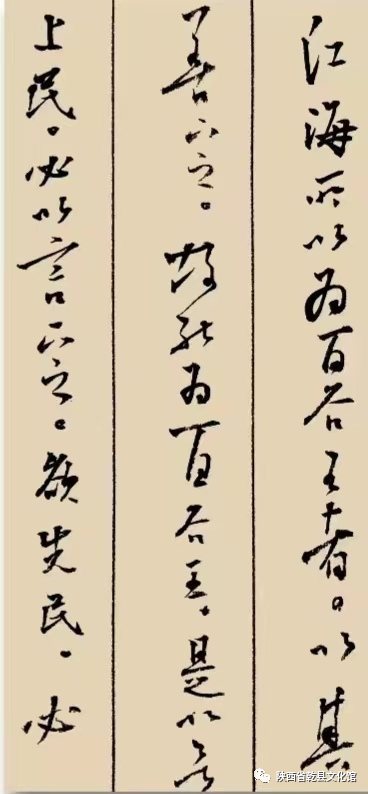 江海所以为百谷王者。以其
善下之。故能为百谷王、是以欲
上民。必以言下之。欲先民。必
陕西省乾县文化馆